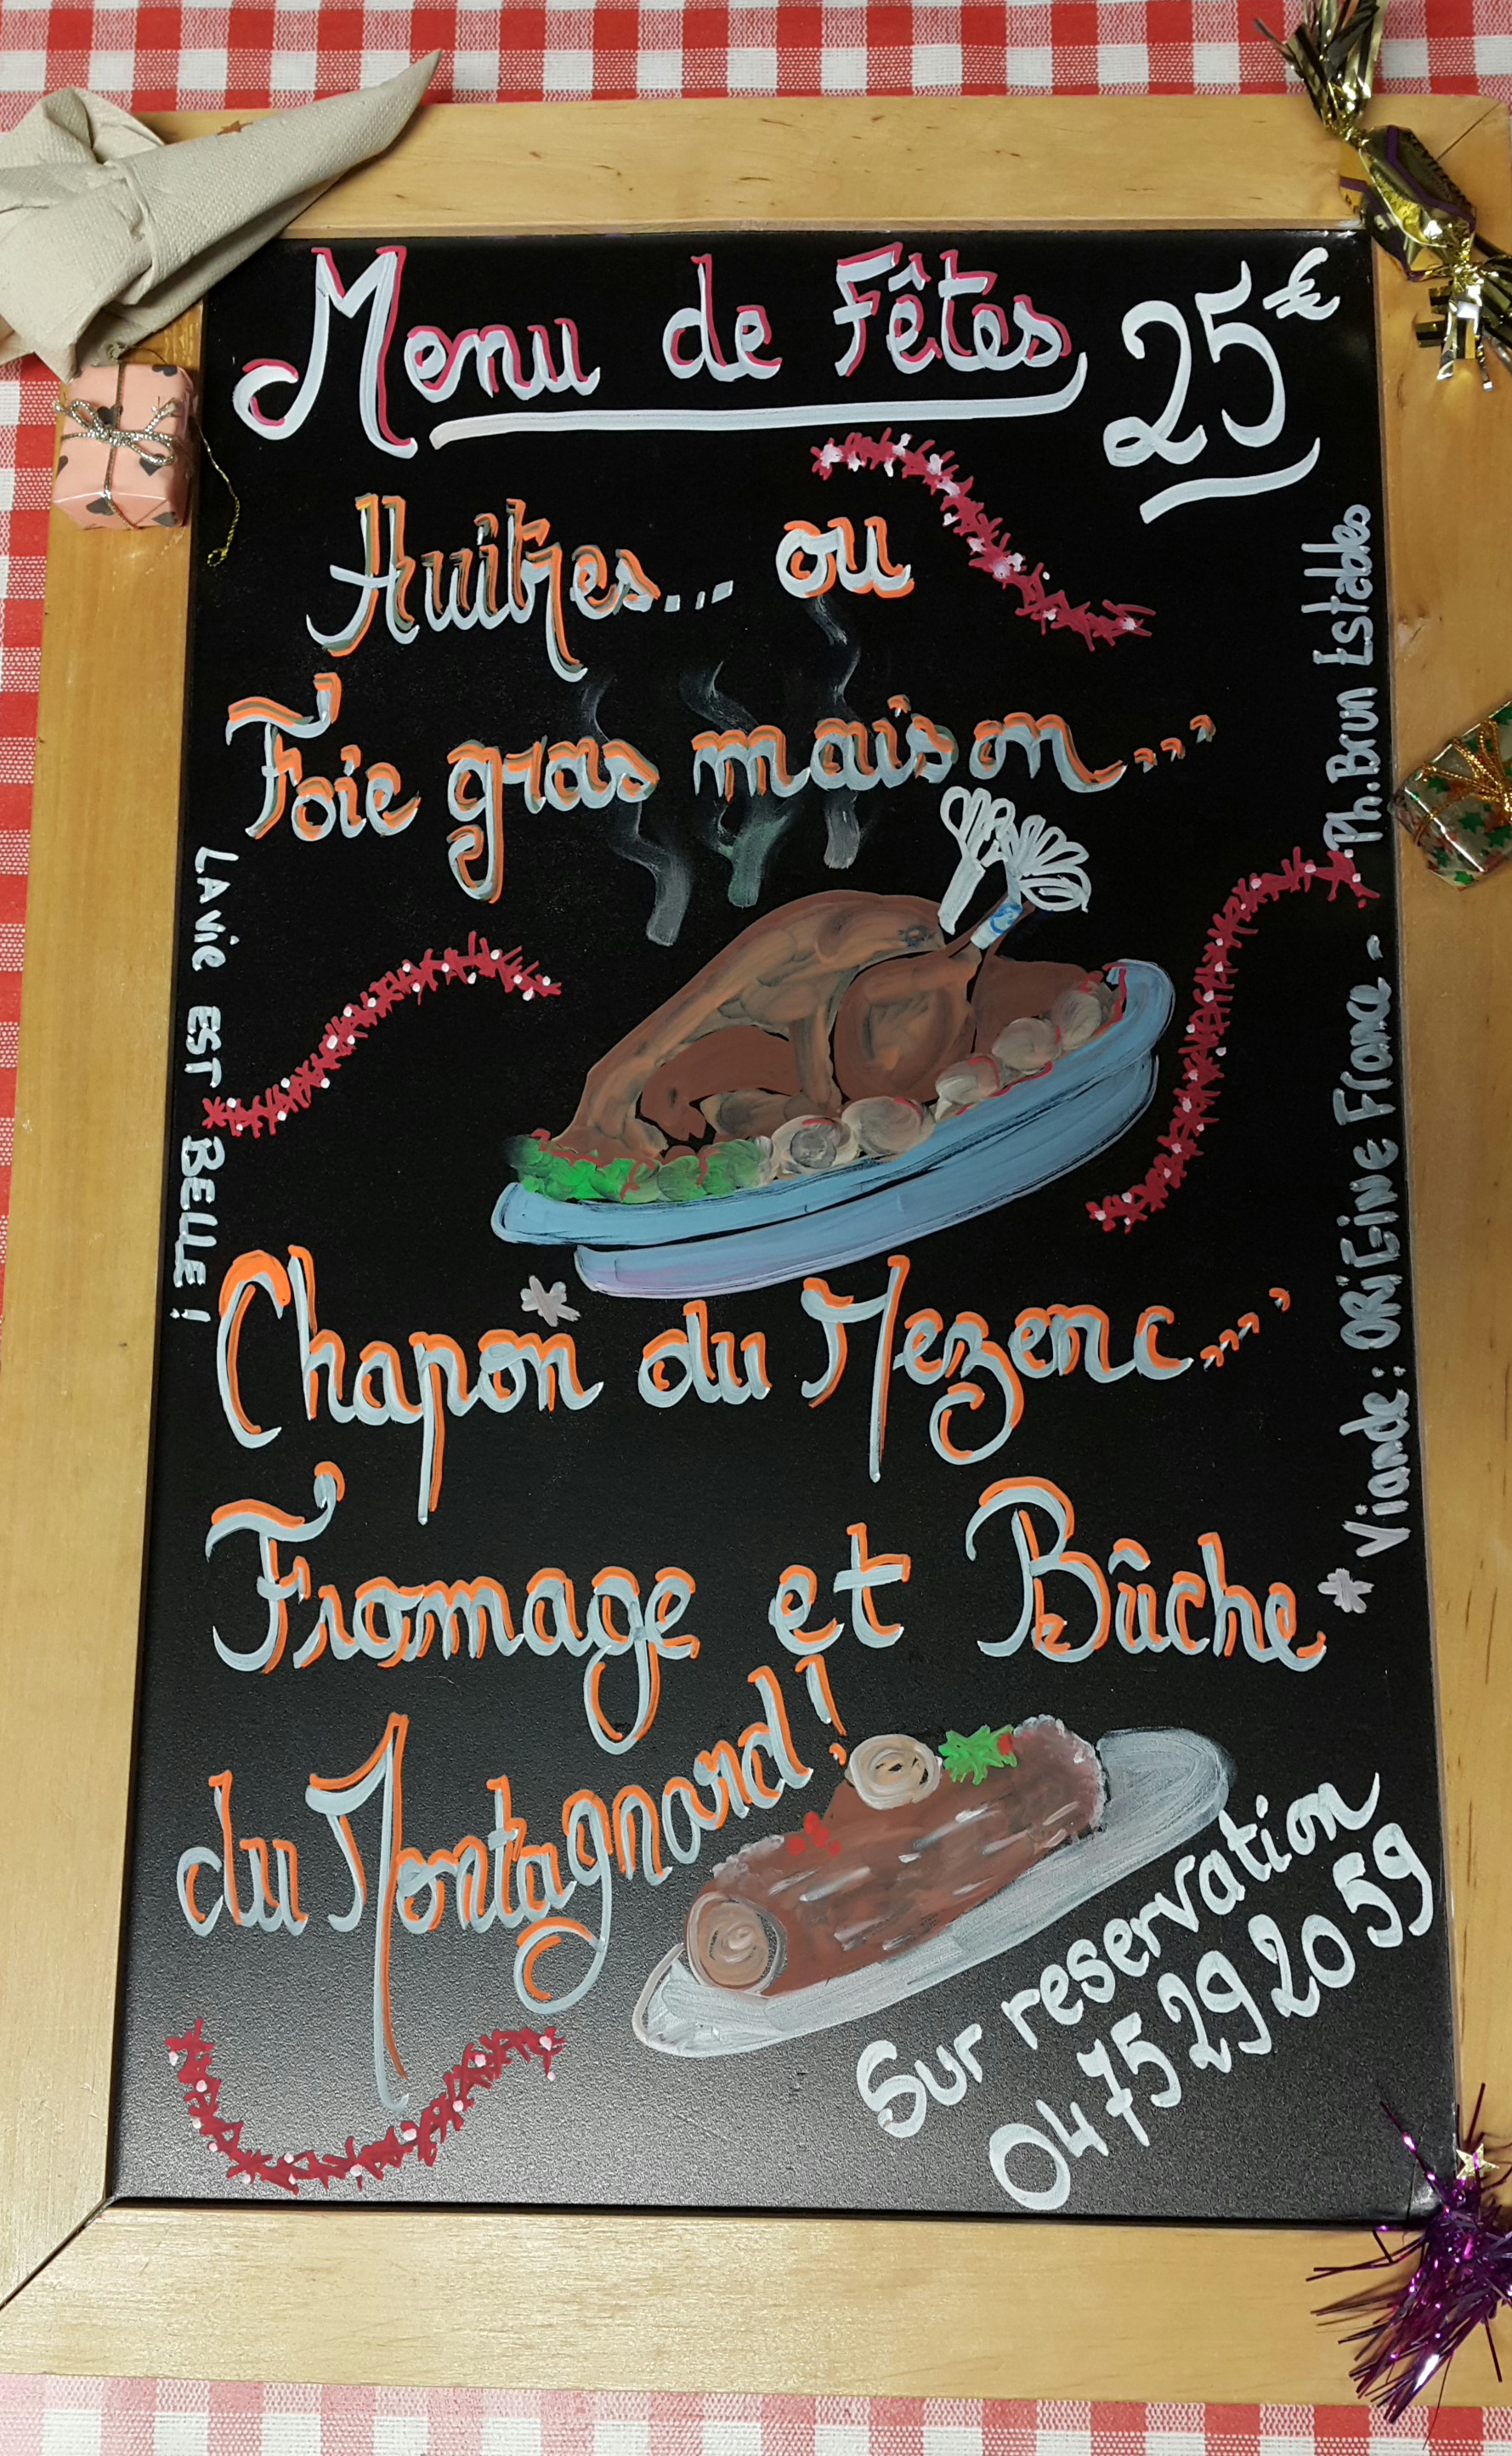 Menu de Fêtes 25€
Huitres... ou
Foie gras maison...
Chapon* du Mezenc...
Fromage et Bûche
du Montagnard!
Sur reservation
04 75 29 20 59
LA viE EST BELLE !
* Viande : ORiGiNE France - Ph. Brun Estables